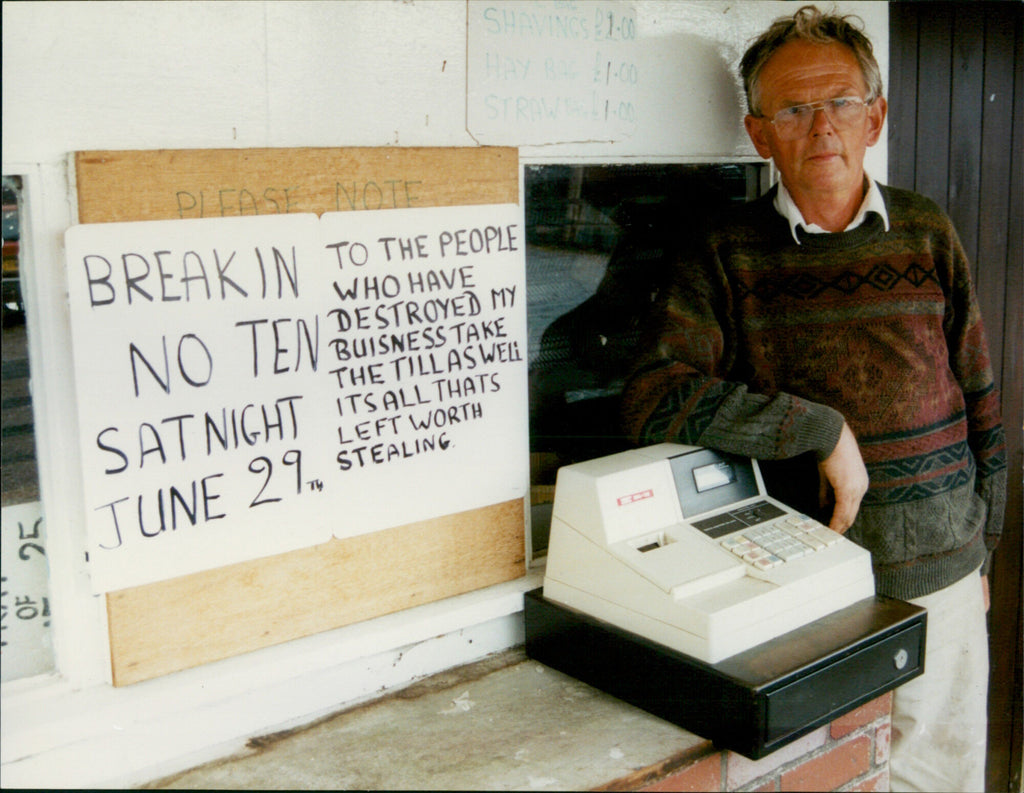 SHAVINGS £1.00
HAY BAG £1.00
STRAW BAG £1.00
PLEASE NOTE
BREAK IN
NO TEN
SAT NIGHT
JUNE 29TH
TO THE PEOPLE
WHO HAVE
DESTROYED MY
BUISNESS TAKE
THE TILL AS WELL
ITS ALL THATS
LEFT WORTH
STEALING.
OF 25